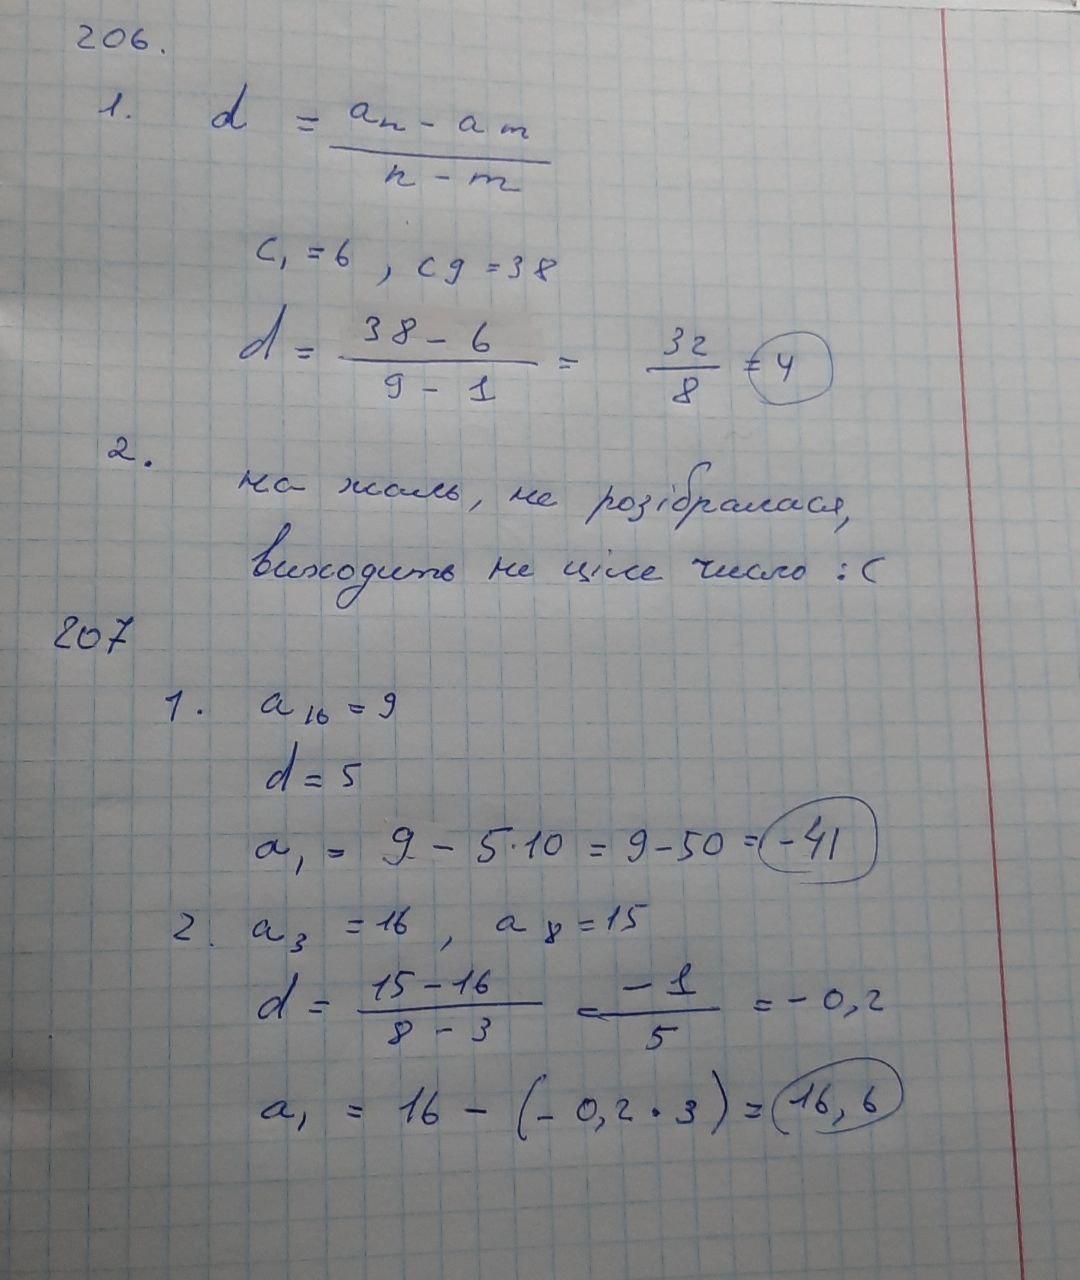 206.
1. d = (aₙ - aₘ)/(n - m)
c₁ = 6, c9 = 38
d = (38 - 6)/(9 - 1) = 32/8 = 4
2. на жаль, не розібралася,
виходить не ціле число :(
207
1. a₁₆ = 9
d = 5
a₁ = 9 - 5·10 = 9-50 = -41
2. a₃ = 16, a₈ = 15
d = (15-16)/(8-3) = -1/5 = -0,2
a₁ = 16 - (-0,2·3) = 16,6